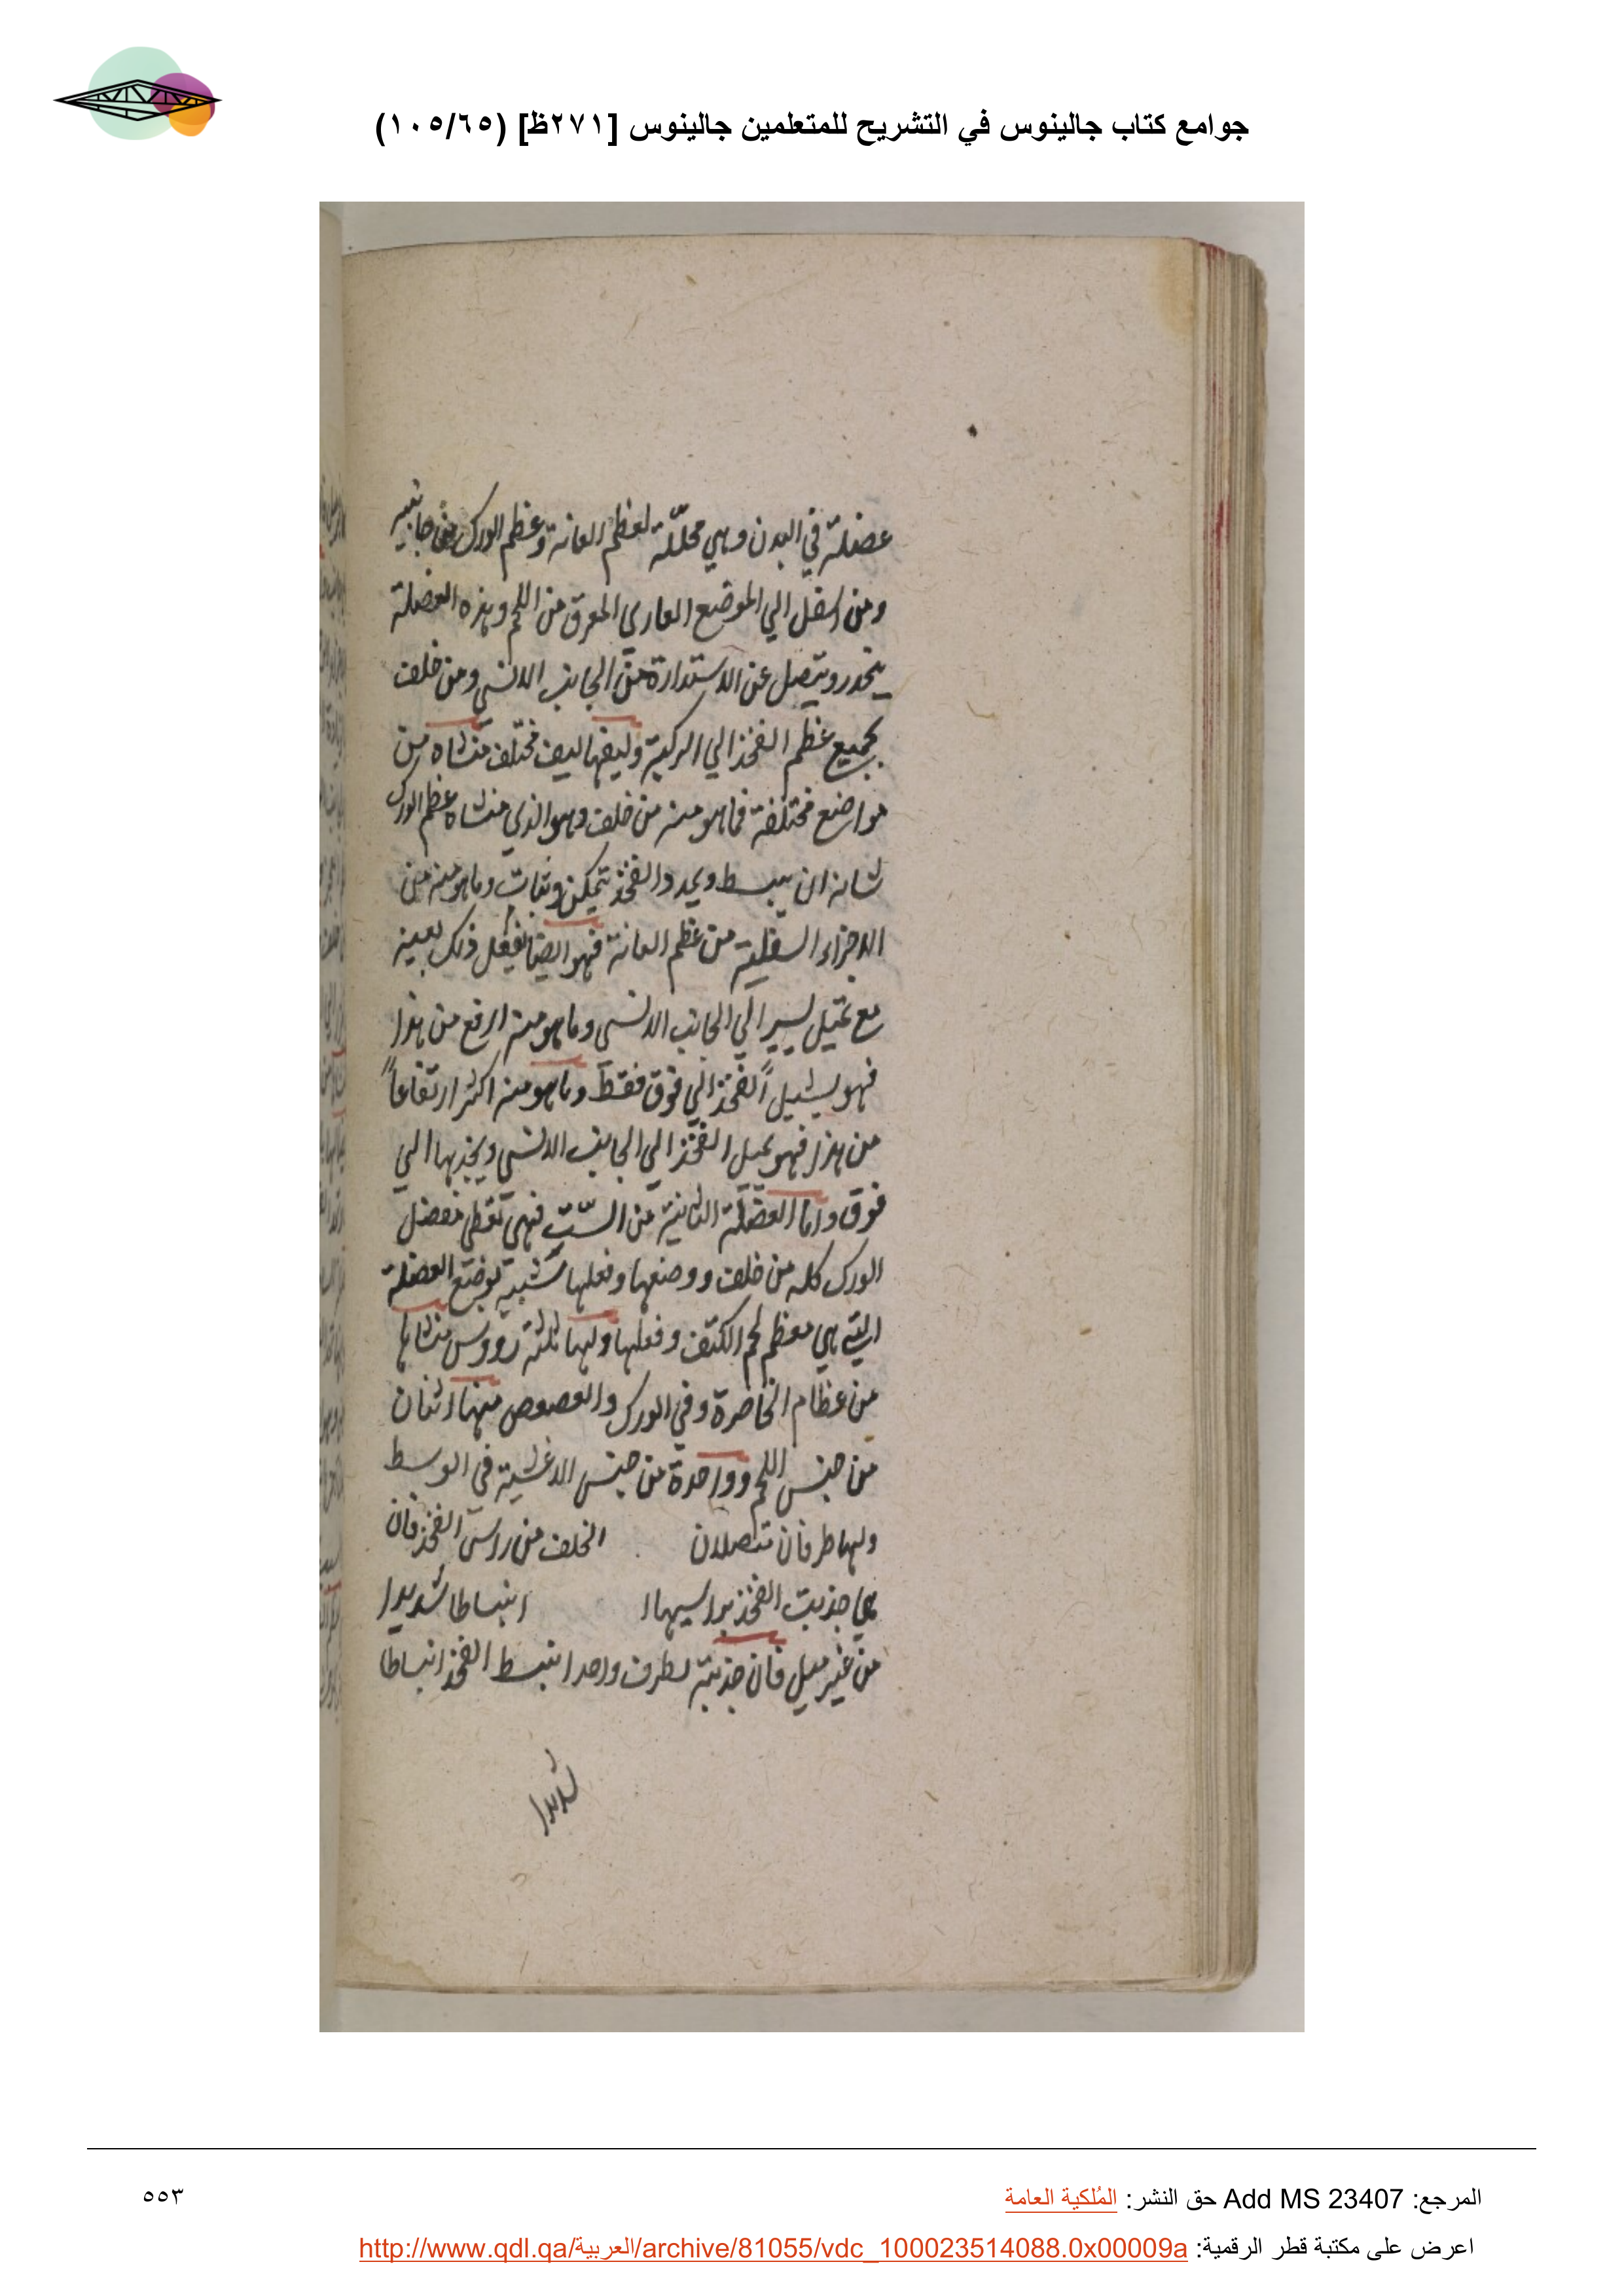 جوامع كتاب جالينوس في التشريح للمتعلمين جالينوس [٢٧١ظ] (١٠٥/٦٥)
عضلة في البدن وهي مجلّلة لعظم العانة وعظم الورك من جانبيه
ومن اسفل الي الموضع العاري المعرق من اللحم وهذه العضلة
ينحدر ويتصل عن الاستدارة من الجانب الانسي ومن خلف
بجميع عظم الفخذ الي الركبة وليفها ليف مختلف منشاه من
مواضع مختلفة فما هو منه من خلف وهو الذي منشاه عظم الورك
شانه ان يبسط ويمدد الفخذ بتمكن وثبات وما هو منه من
الاجزاء السفلية من عظم العانة فهو ايضا يفعل ذلك بعينه
مع تميل يسير الي الجانب الانسي وما هو منه ارفع من هذا
فهو يشيل الفخذ الي فوق فقط وما هو منه اكثر ارتفاعاً
من هذا فهو يميل الفخذ الي الجانب الانسي ويجذبها الي
فوق واما العضلة الثانية من الستّ فهي تغطي مفصل
الورك كله من خلف ووضعها وفعلها شبيه بوضع العضلة
التي هي معظم لحم الكتف وفعلها ولها ثلثة رووس منشاها
من عظام الخاصرة وفي الورك والعصوص منها اثنان
من جنس اللحم وواحدة من جنس الاغشية في الوسط
ولها طرفان تتصلان الخلف من راس الفخذ فان
هي جذبت الفخذ براسيها انبساطا شديدا
من غير ميل فان جذبته بطرف واحد انبسط الفخذ انبساطا
شديدا
المرجع: Add MS 23407 حق النشر: المُلكية العامة
٥٥٣
اعرض على مكتبة قطر الرقمية: http://www.qdl.qa/العربية/archive/81055/vdc_100023514088.0x00009a